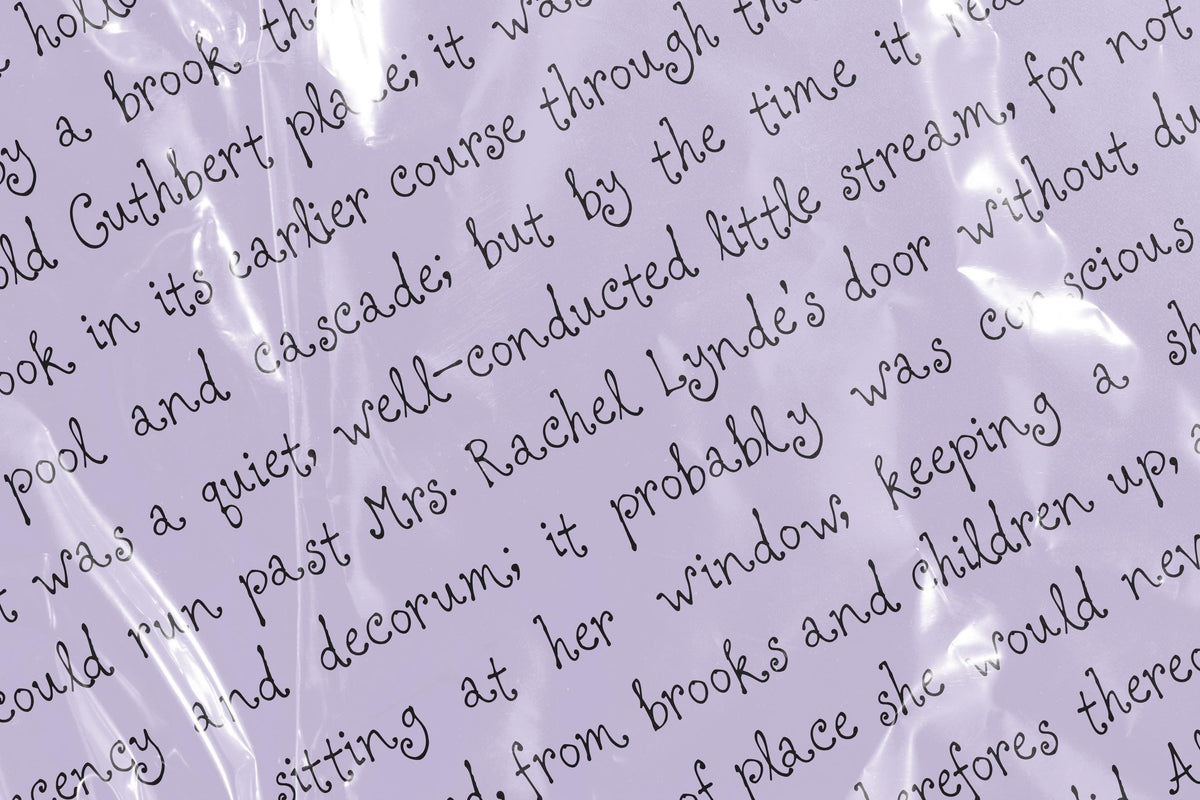 hollo
by a brook th
old Cuthbert place; it was
ook in its earlier course through th
pool and cascade; but by the time it rea
t was a quiet, well-conducted little stream, for not
could run past Mrs. Rachel Lynde's door without du
cency and decorum; it probably was conscious
sitting at her window, keeping a sh
d, from brooks and children up, a
of place she would nev
herefores thereo
id. Af